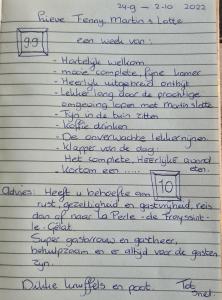 24-9 - 2-10 2022
Lieve Fenny, Martin & Lotte
99
een week van:
- Hartelijk welkom
- mooie complete, fijne kamer
- Heerlijk uitgebreid ontbijt
- Lekker lang door de prachtige
omgeving lopen met Martin & Lotte
- Tijd in de tuin zitten
- Koffie drinken
- De onverwachte lekkernijen
- Klapper van de dag:
Het complete, Heerlijke avond
eten.
- Kortom een .....
10
Advies: Heeft u behoefte aan
rust, gezelligheid en gastvrijheid, reis
dan af naar La Perle - de Froyssint-
le-Gelat.
Super gastvrouw en gastheer,
behulpzaam en er altijd voor de gasten
zijn.
Dikke knuffels en poot.
Tot
Snel.